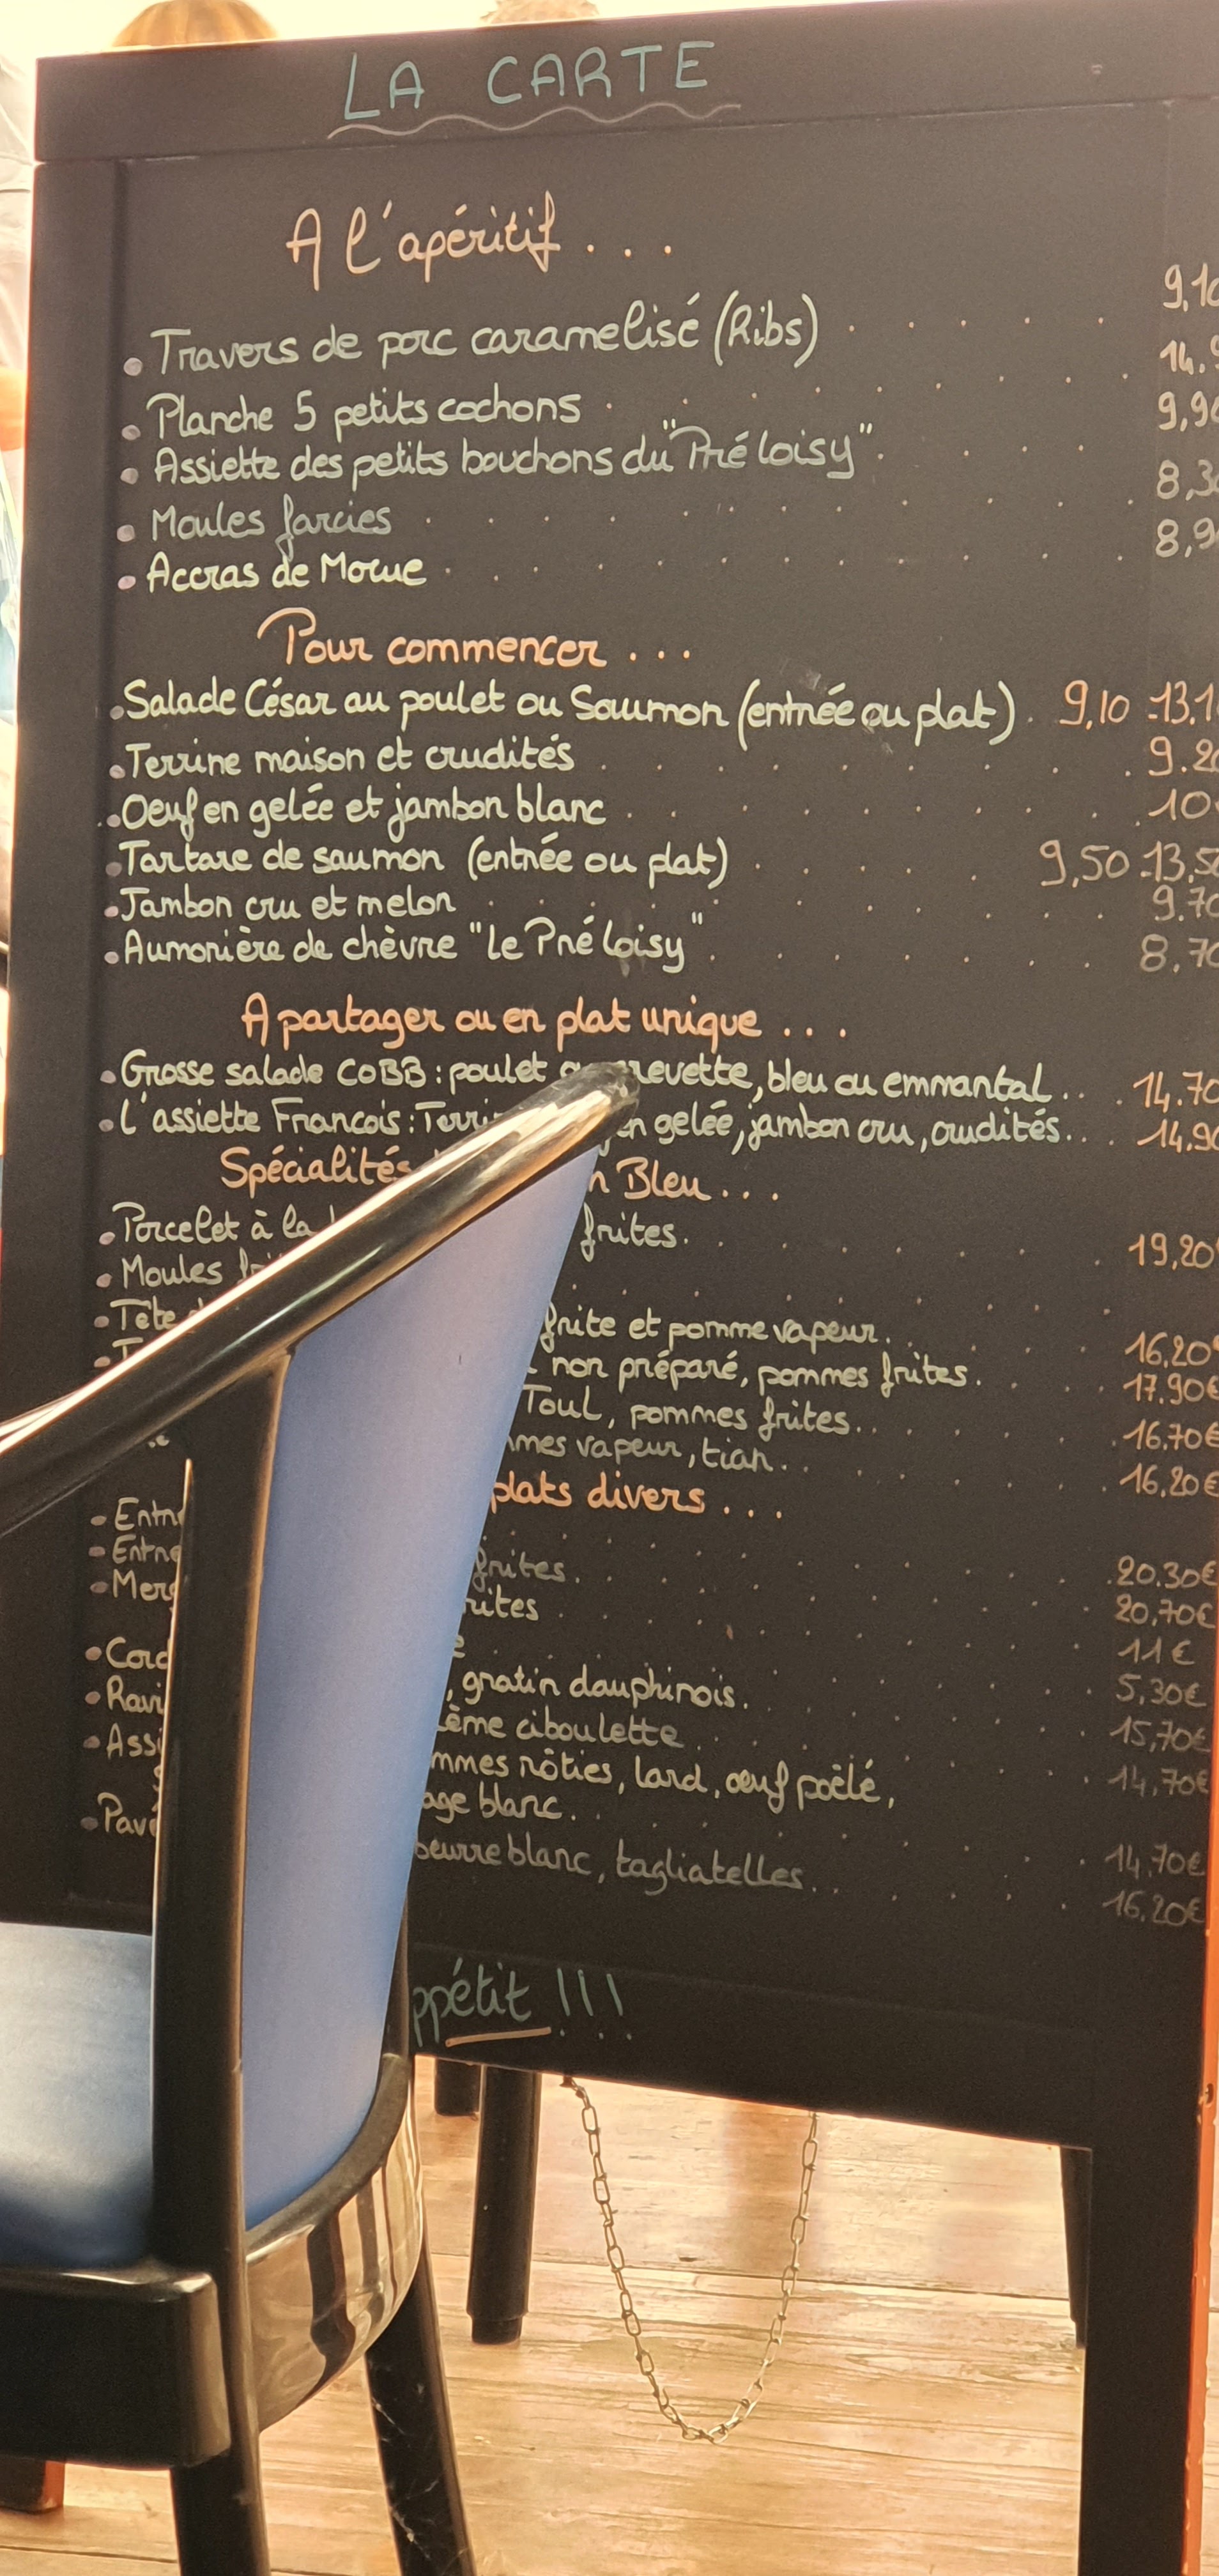 LA CARTE
A l'apéritif...
• Travers de porc caramelisé (Ribs) . . . . . 9,10
• Planche 5 petits cochons . . . . . 14.
• Assiette des petits bouchons du "Pré Loisy" . . . . 9,90
• Moules farcies . . . . . 8,30
• Accras de Morue . . . . . 8,9
Pour commencer...
• Salade César au poulet ou Saumon (entrée ou plat) . 9,10 - 13.1
• Terrine maison et crudités . . . . . 9.20
• Oeuf en gelée et jambon blanc . . . . . 10
• Tartare de saumon (entrée ou plat) . . . . . 9,50 - 13,50
• Jambon cru et melon . . . . . 9.70
• Aumonière de chèvre "Le Pré Loisy" . . . . . 8,70
A partager ou en plat unique...
• Grosse salade COBB : poulet revette, bleu ou emmantal... 14.70
• L'assiette François : Terri en gelée, jambon cru, crudités... 14.90
Spécialités n Bleu...
• Porcelet à la frites. . . . . 19,20
• Moules
• Tête frite et pomme vapeur. . . . . 16,20€
• non préparé, pommes frites. . . . . 17.90€
Toul, pommes frites. . . . . 16.70€
mmes vapeur, tian. . . . . 16,20€
plats divers...
• Entr frites. . . . . 20.30€
• Entre rites . . . . . 20,70€
• Merg 11€
5,30€
• Cord , gratin dauphinois. . . . . 15,70€
• Ravi ème ciboulette . . . . . 14,70€
• Assi mmes rôties, lard, œuf poêlé,
age blanc. . . . . 14,70€
• Pavé beurre blanc, tagliatelles . . . . . 16.20€
ppétit !!!